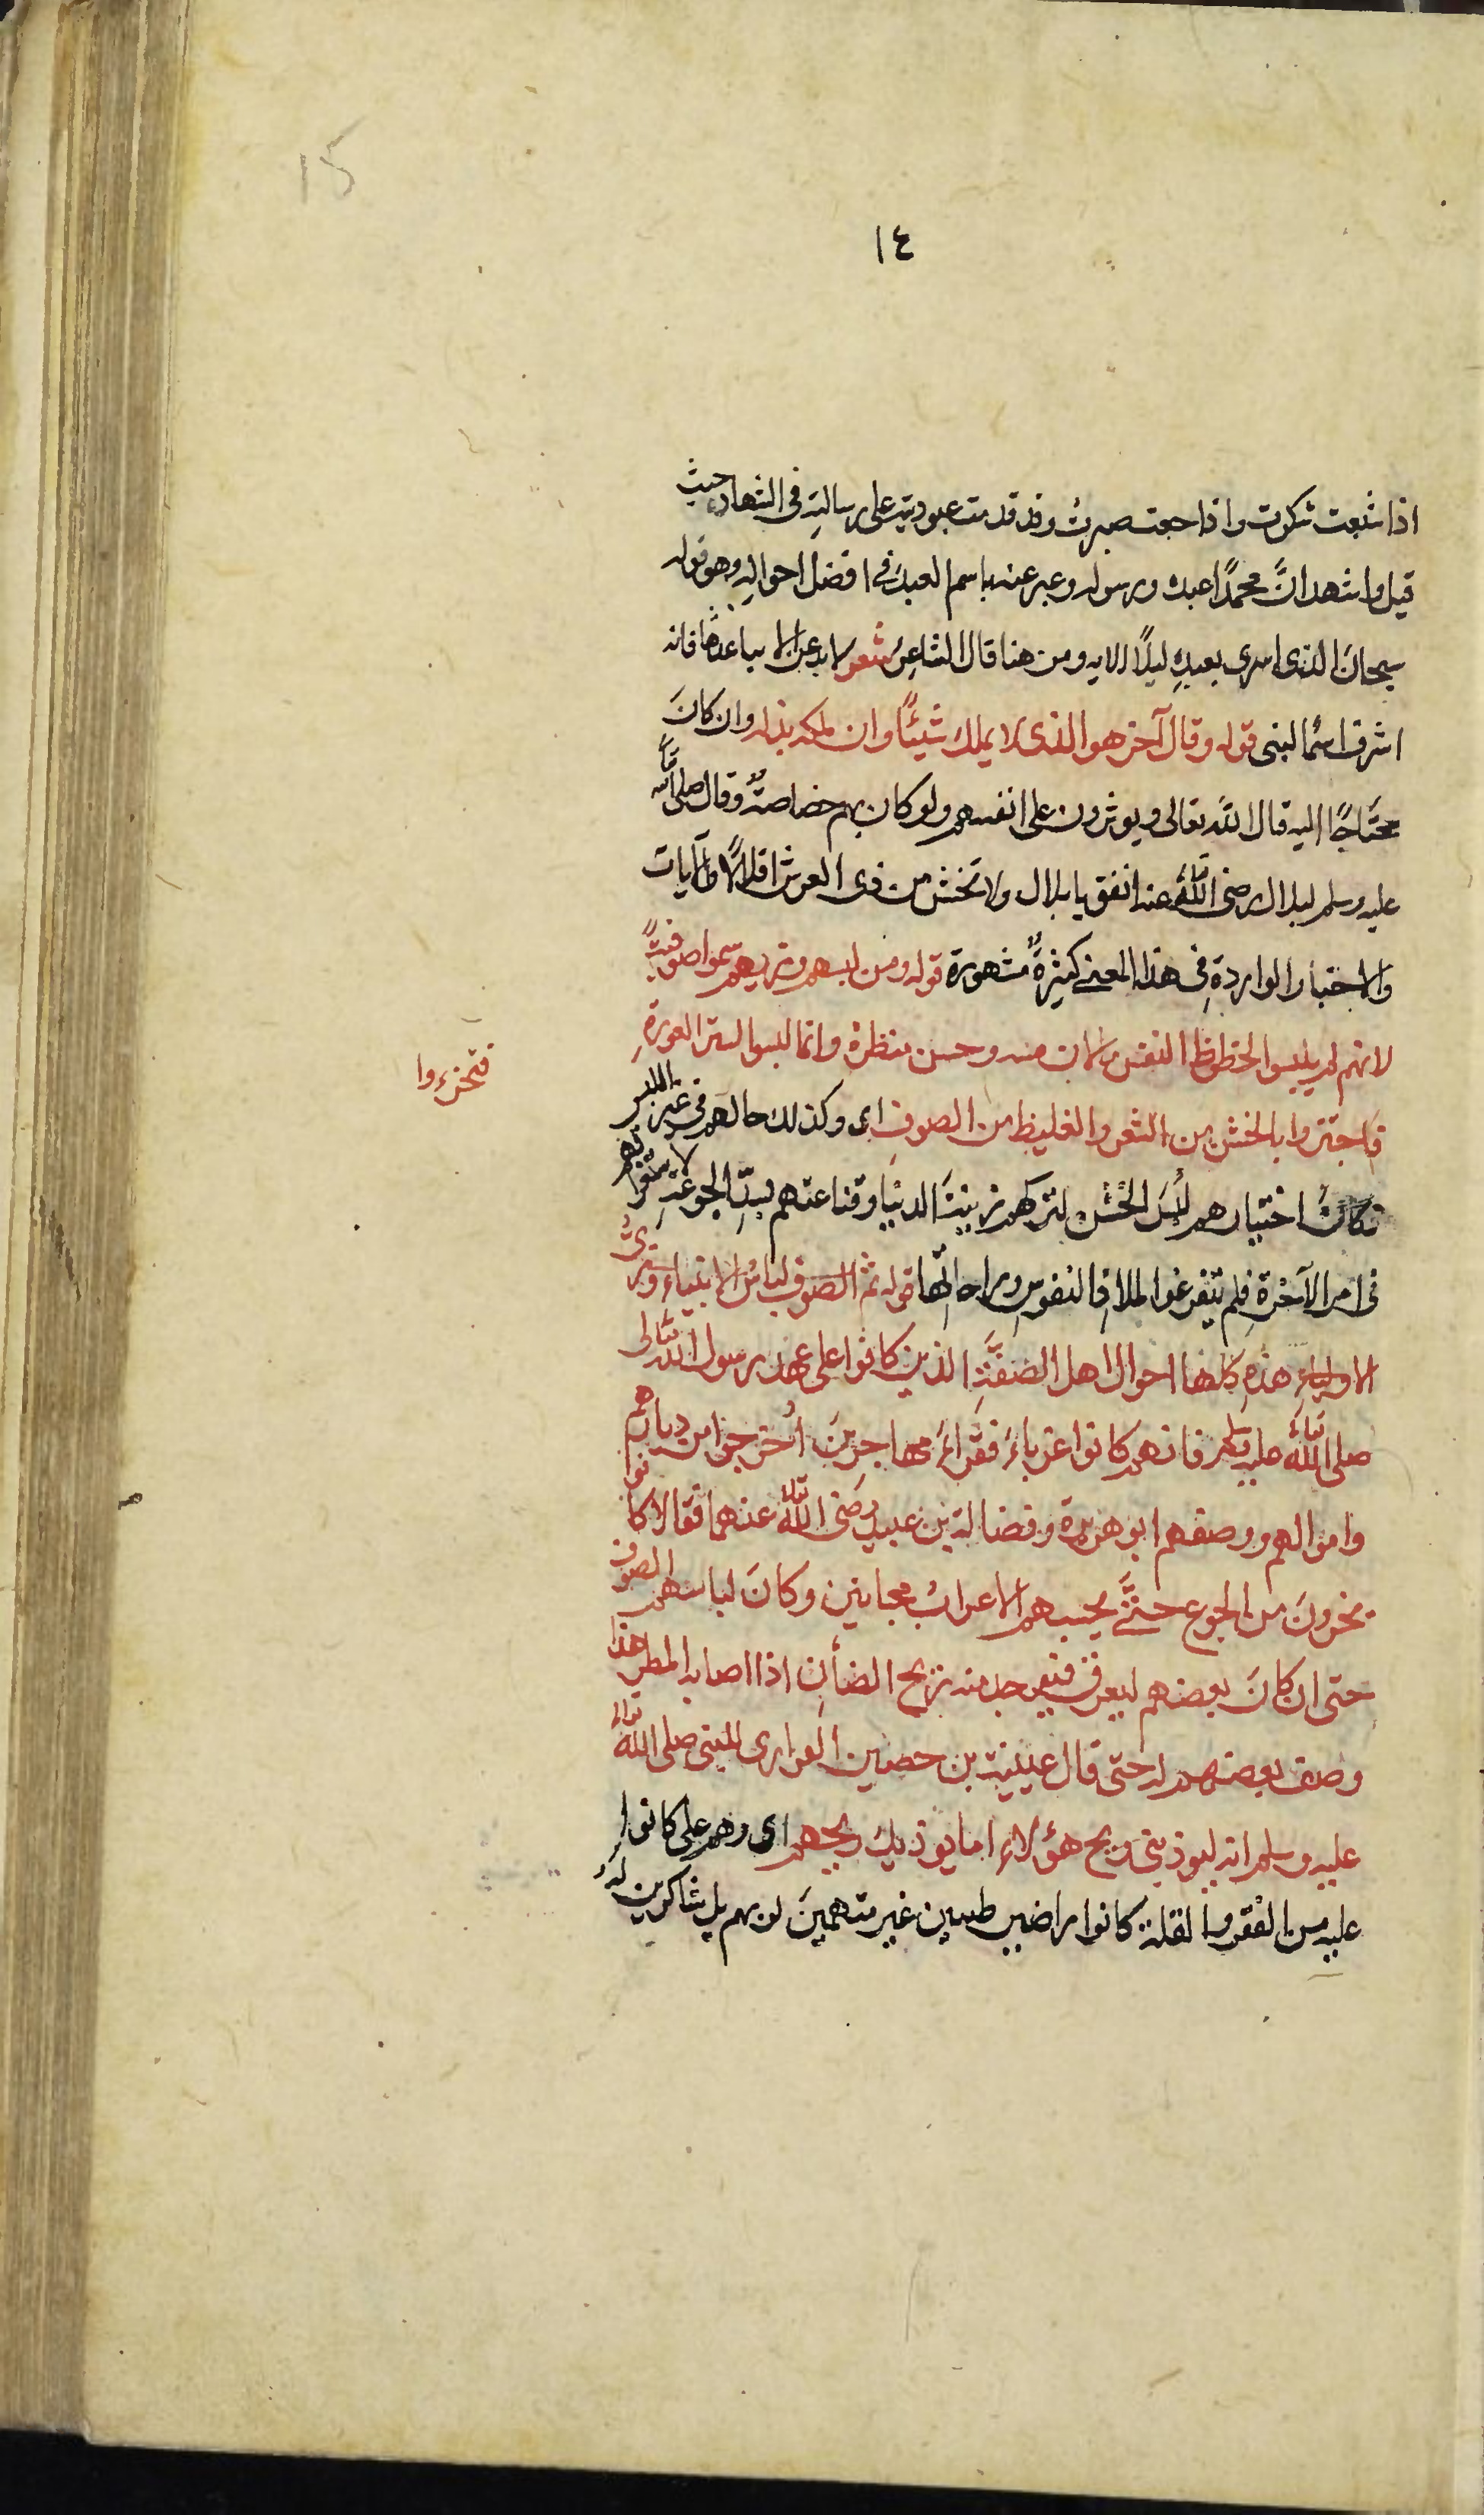 15
١٤
اذا شبعت شكرت واذا جعت صبرت وقد قدمت عبوديته على رسالته في التشهاد حيث
قيل واشهد انَّ محمدًا عبده ورسوله وعبر عنه باسم العبد في افضل احواله وهو قوله
سبحان الذى اسرى بعبده ليلًا الايه ومن هنا قال الشاعر شعر لا تدعنى الا بيا عبدها فانه
اشرف اسمائى قوله وقال آخر هو الذى لا يملك شيئًا وان ملكه بذله وان كانَ
محتاجًا اليه قال الله تعالى ويوثرون على انفسهم ولو كان بهم خصاصة وقال صلى الله
عليه وسلم لبلال رضى الله عنه انفق يا بلال ولا تخش من ذى العرش اقلالًا والآيات
والاخبار الواردة في هذا المعنى كثيرةٌ مشهورة قوله ومن لبسهم وزيهم سموا صوفيةً
لانهم لم يلبسوا لحظوظ النفس ما لان مسه وحسن منظره وانما لبسوا لستر العورةِ
فتحزءوا
فاجتزوا بالخشن من الشعر والغليظ من الصوف اى وكذلك حالهم في غير اللبس
فكانَ اختيارهم لُبسَ الخَشن لتركهم زينتَ الدنيا وقناعتهم بسدِّ الجوعةِ لاستغراقهم
فى امر الآخرةِ فلم يتفرغوا لملاذ النفوسِ وراحاتها قوله ثم الصوف لباسُ الانبياء وزىُّ
الاولياءِ هذه كلها احوال اهل الصفَّةِ الذين كانوا على عهد رسول الله تعالى
صلى اللهُ عليه وسلم فانهم كانوا غرباءَ فقراءَ مهاجرينَ اُخرجوا من ديارهم
واموالهم ووصفهم ابو هريرة وفضالة بن عبيد رضى اللهُ عنهما فقالا كانوا
يخرونَ من الجوع حتَّى يحسبهم الاعرابُ مجانين وكانَ لباسهم الصوف
حتى ان كانَ بعضهم ليعرق فيوجد منه ريح الضأن اذا اصابه المطر هذا
وصف بعضهم له حتى قال عيينة بن حصين الفزارى للنبى صلى اللهُ تعالى
عليه وسلم انه ليوذينى ريح هؤلاءِ اما يوذيك ريحهم اى وهم على كانوا
عليه من الفقر والقلة كانوا راضين طيبين غير متهمينَ لربهم بل شاكرين لهُ